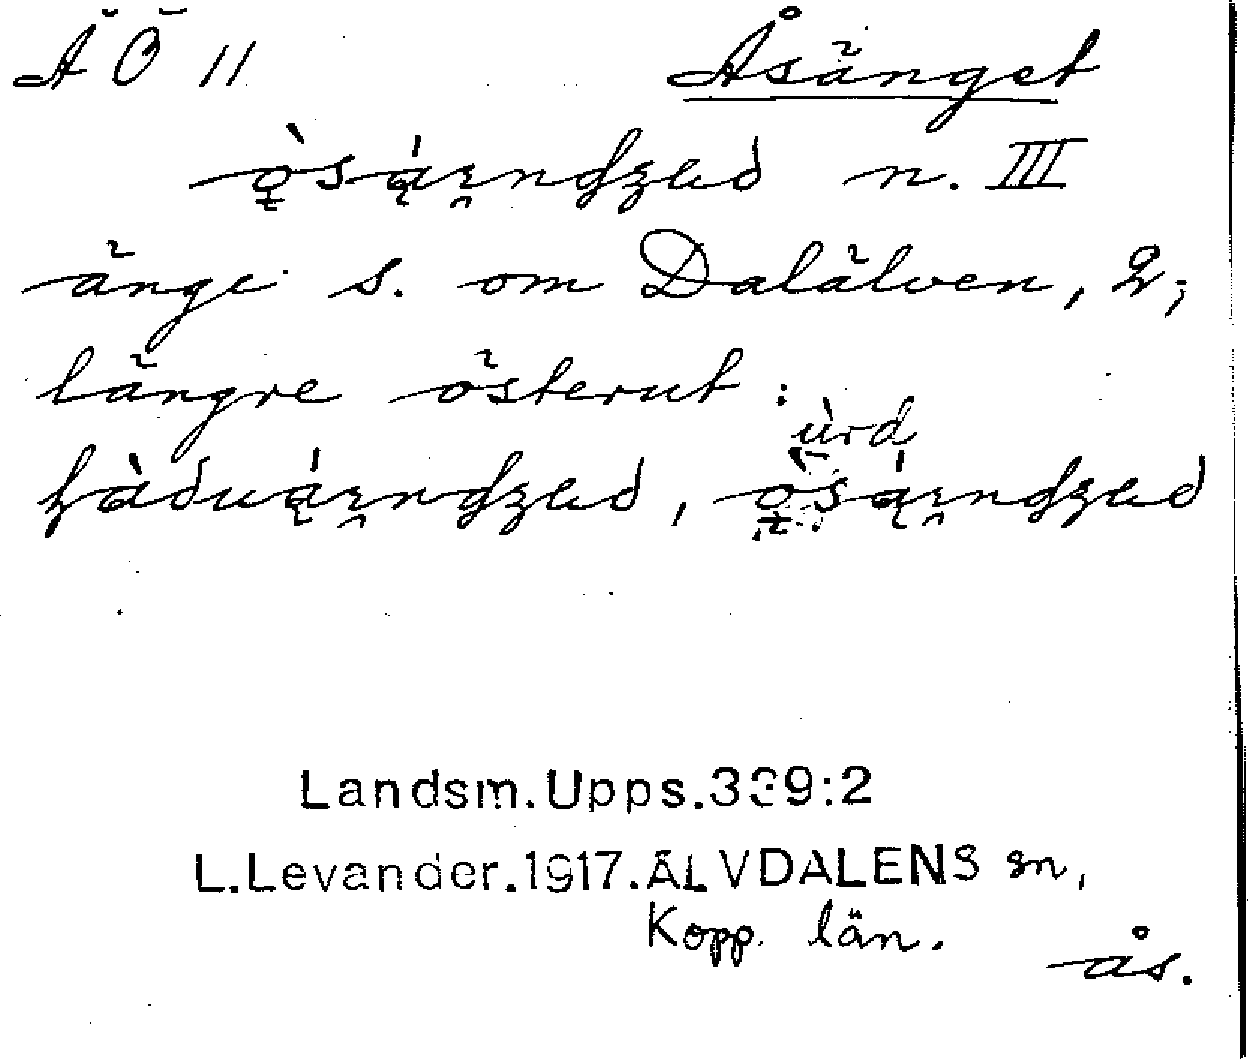 Ä Ö 11 Åsänget
n. III
änge s. om Dalälven, 2;
längre österut:
Landsm.Upps.339:2
L.Levander.1917.ÄLVDALENS sn,
Kopp. län.
ås.